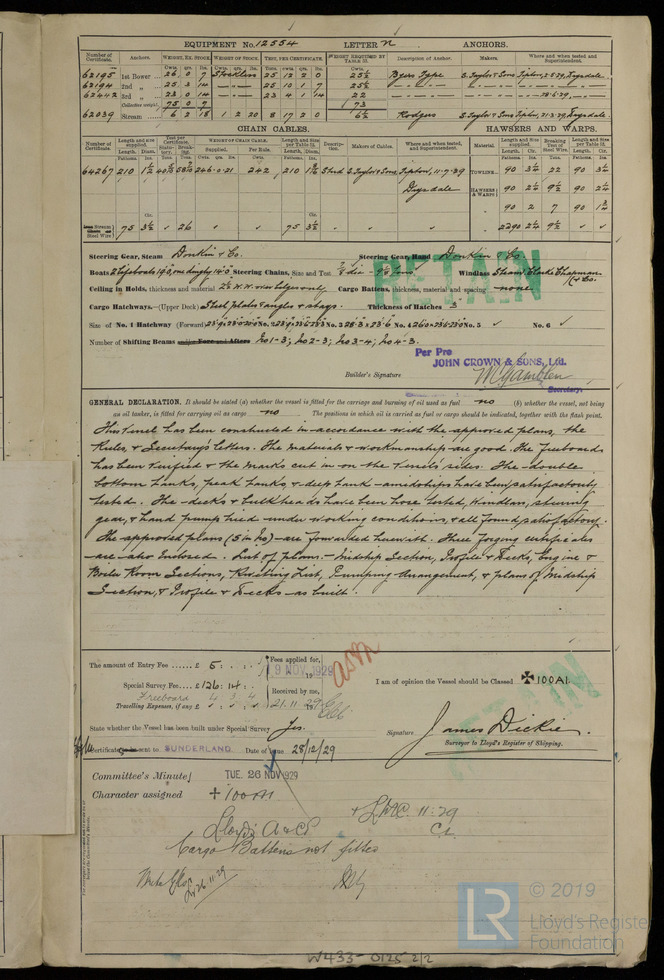 EQUIPMENT No. 12554 LETTER n ANCHORS.
Number of Certificate. Anchors. WEIGHT, EX. STOCK. WEIGHT OF STOCK. TEST, PER CERTIFICATE. WEIGHT REQUIRED BY TABLE 31. Description of Anchor. Makers. Where and when tested and Superintendent.
62195 1st Bower 26 0 7 Stockless 25 12 2 0 25½ Byers Type S. Taylor & Sons Tipton, Drysdale.
62194 2nd 25 3 14 25 10 1 7 25½
62442 3rd 23 0 14 23 4 1 14 22
Collective weight. 75 0 7 73
62039 Stream 6 2 18 1 2 20 8 17 2 0 6½ Rodgers S. Taylor & Sons Tipton, 21-3-29, Drysdale.
CHAIN CABLES. HAWSERS AND WARPS.
Number of Certificate. Length and size supplied. Test per Certificate. WEIGHT OF CHAIN CABLE. Length and Size per Table 31. Description. Makers of Cables. Where and when tested, and Superintendent. Material. Length and Size supplied. Breaking Test of Steel Wire. Length and Size per Table 31.
64267 210 246-0-21 242 210 Stud S. Taylor & Sons Tipton, 11-7-29 Drysdale
TOWLINE 90 3½ 22 90 3½
HAWSERS & WARPS 90 2¼ 9½ 90 2¼
90 2 7 90 1¾
Stream Steel Wire 75 3½ ✓ 26 75 3½ 2290 2¼ 9½ ✓ ✓
Steering Gear, Steam Donkin & Co. Steering Gear, Hand Donkin & Co.
Boats 2 lifeboats 19.0, one dinghy 14.0 Steering Chains, Size and Test Windlass Steam Clarke Chapman & Co.
Ceiling in Holds, thickness and material 2½ W.W. over bilges only Cargo Battens, thickness, material and spacing none
RETAIN
Cargo Hatchways.—(Upper Deck) Steel plates & angles & stays. Thickness of Hatches 3"
Size of No. 1 Hatchway (Forward) No. 2 No. 3 28.3 x 23.6 No. 4 No. 5 ✓ No. 6 ✓
Number of Shifting Beams and/or Fore and Afters No 1-3; No 2-3; No 3-4; No 4-3.
Per Pro
JOHN CROWN & SONS, Ltd.
Builder's Signature
Secretary.
GENERAL DECLARATION. It should be stated (a) whether the vessel is fitted for the carriage and burning of oil used as fuel no (b) whether the vessel, not being
an oil tanker, is fitted for carrying oil as cargo no The positions in which oil is carried as fuel or cargo should be indicated, together with the flash point.
This vessel has been constructed in accordance with the approved plans, the
Rules, & Secretary's letters. The materials & workmanship are good. The freeboards
has been verified & the marks cut in on the vessel's sides. The double
bottom tanks, peak tanks, & deep tank amidships have been satisfactorily
tested. The decks & bulkheads have been hose tested, windlass, steering
gear, & hand pumps tried under working conditions, & all found satisfactory.
The approved plans (5 in No) are forwarded herewith. Three forging certificates
are also enclosed. List of plans:- Midship Section, Profile & Decks, Engine &
Boiler Room Sections, Rivetting List, Pumping Arrangement, & plans of Midship
Section, & Profile & Decks as built.
The amount of Entry Fee £ 5 : : Fees applied for, 9 NOV. 1929
asm
Special Survey Fee £ 126 : 14 : Received by me,
Freeboard 4 3 4
Travelling Expenses, if any £ 21.11.29
I am of opinion the Vessel should be Classed ✠ 100A1.
RETAIN
State whether the Vessel has been built under Special Survey Yes. Signature James Dickie.
Surveyor to Lloyd's Register of Shipping.
Certificate to be sent to SUNDERLAND Date of issue 28/12/29
Committee's Minute TUE. 26 NOV 1929
Character assigned + 100A1
+ LMC. 11.29
C.L.
Lloyd's A & CP
Cargo Battens not fitted
26.11.29
© 2019
LR
Lloyd's Register
Foundation
W433-0125 2/2